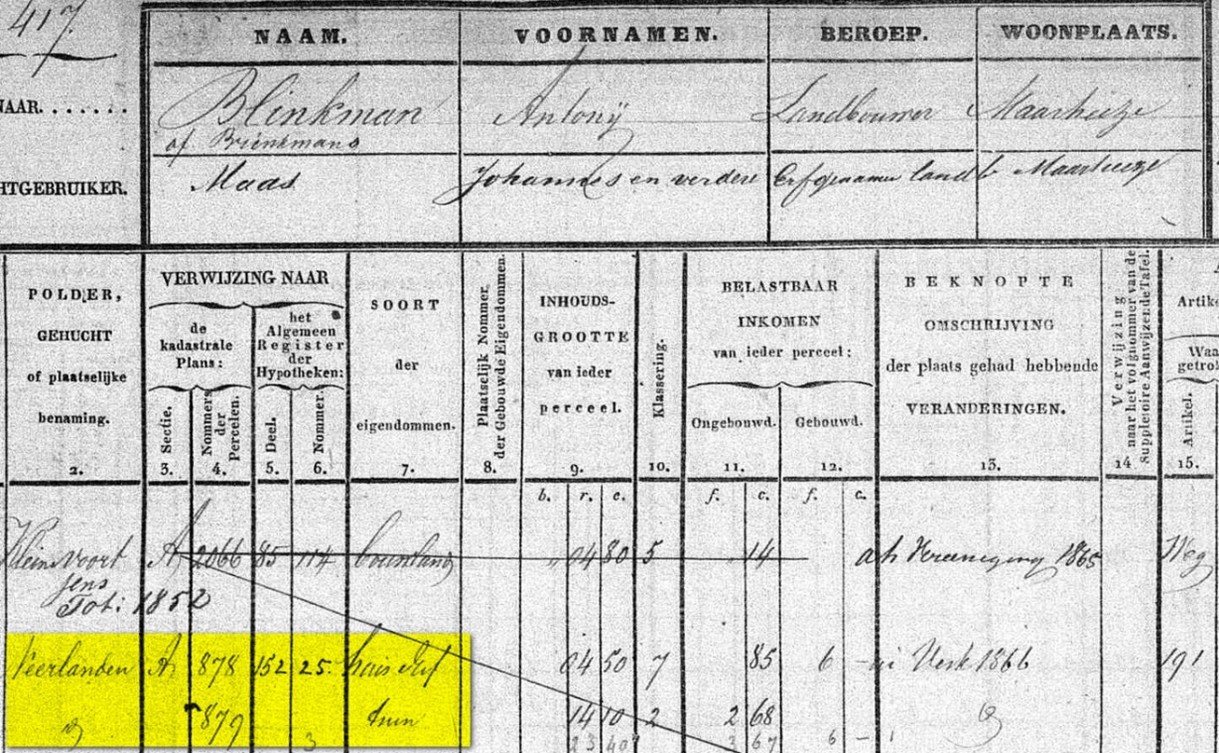 417.
NAAM. VOORNAMEN. BEROEP. WOONPLAATS.
NAAR. . . . . . . Blinkman Antonij Landbouwer Maarheeze
of Brinkmans
HTGEBRUIKER. Maas Johannes en verdere Erfgenamen landb Maarheeze
POLDER,
GEHUCHT
of plaatselijke
benaming.
2.
VERWIJZING NAAR
de
kadastrale
Plans:
Sectie.
3.
Nommers
der
Percelen.
4.
het
Algemeen
Register
der
Hypotheken:
Deel.
5.
Nommer.
6.
SOORT
der
eigendommen.
7.
Plaatselijk Nommer,
der Gebouwde Eigendommen.
8.
INHOUDS-
GROOTTE
van ieder
perceel.
9.
b. r. e.
Klassering.
10.
BELASTBAAR
INKOMEN
van ieder perceel:
Ongebouwd.
11.
f. c.
Gebouwd.
12.
f. c.
BEKNOPTE
OMSCHRIJVING
der plaats gehad hebbende
VERANDERINGEN.
13.
Verwijzing
naar het volgnommer van de
Suppletoire Aanwijzende Tafel.
14
Artike
Waa
getro
Artikel.
15.
Klein voort A 2066 85 114 bouwland 04 80 5 14 Vereeniging 1865 Weg
Tot: 1852
Veerlanden A 878 152 25 huis erf 04 50 7 85 6 - Verk 1866 191
879 3 tuin 14 10 2 2 68
23 40 3 67 6 -